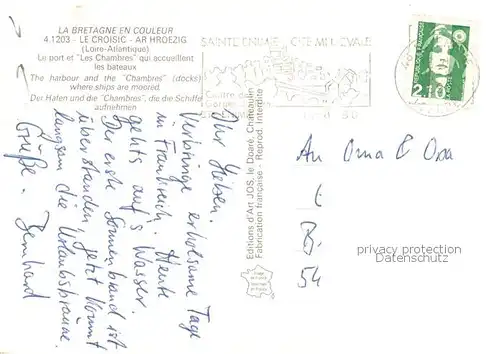 LA BRETAGNE EN COULEUR
4.1203 - LE CROISIC - AR HROEZIG
(Loire-Atlantique)
Le port et "Les Chambres" qui accueillent
les bateaux
The harbour and the "Chambres" (docks)
where ships are moored.
Der Hafen und die "Chambres", die die Schiffe
aufnehmen
Ihr Lieben.
Verbringe erholsame Tage
in Frankreich. Heute
gehts auf's Wasser.
Der erste Sonnenbrand ist
überstanden jetzt kommt
langsam die Urlaubsbräune.
Grüße. Bernhard
Editions d'Art JOS, le Doaré, Châteaulin
Fabrication française - Reprod. Interdite
SAINTE ENIMIE CITE MEDIEVALE
2,10
An Oma & Opa
B.
54
privacy protection
Datenschutz